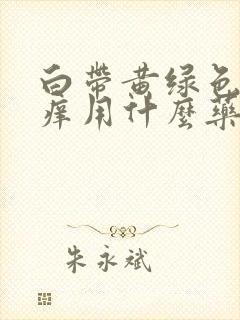 白带黄绿色
痒用什麼药
朱永斌